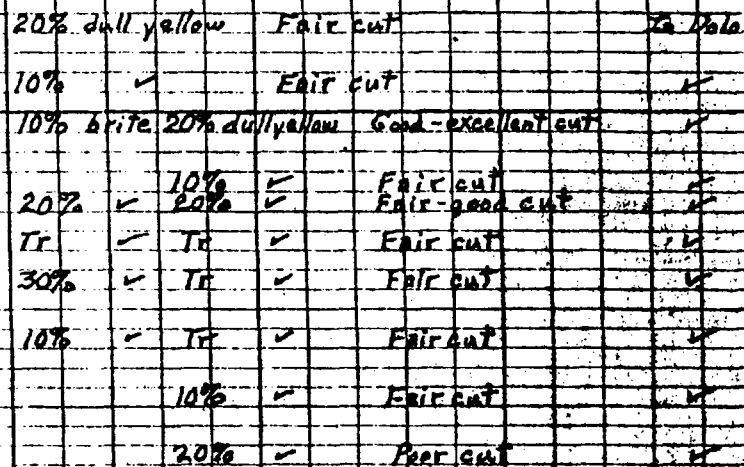 20% dull yellow Fair cut In Dolo
10% ✓ Fair cut ✓
10% brite 20% dull yellow Good-excellent cut ✓
10% ✓ Fair cut ✓
20% ✓ 20% ✓ Fair-good cut ✓
Tr ✓ Tr ✓ Fair cut ✓
30% ✓ Tr ✓ Fair cut ✓
10% ✓ Tr ✓ Fair cut ✓
10% ✓ Fair cut ✓
20% ✓ Poor cut ✓